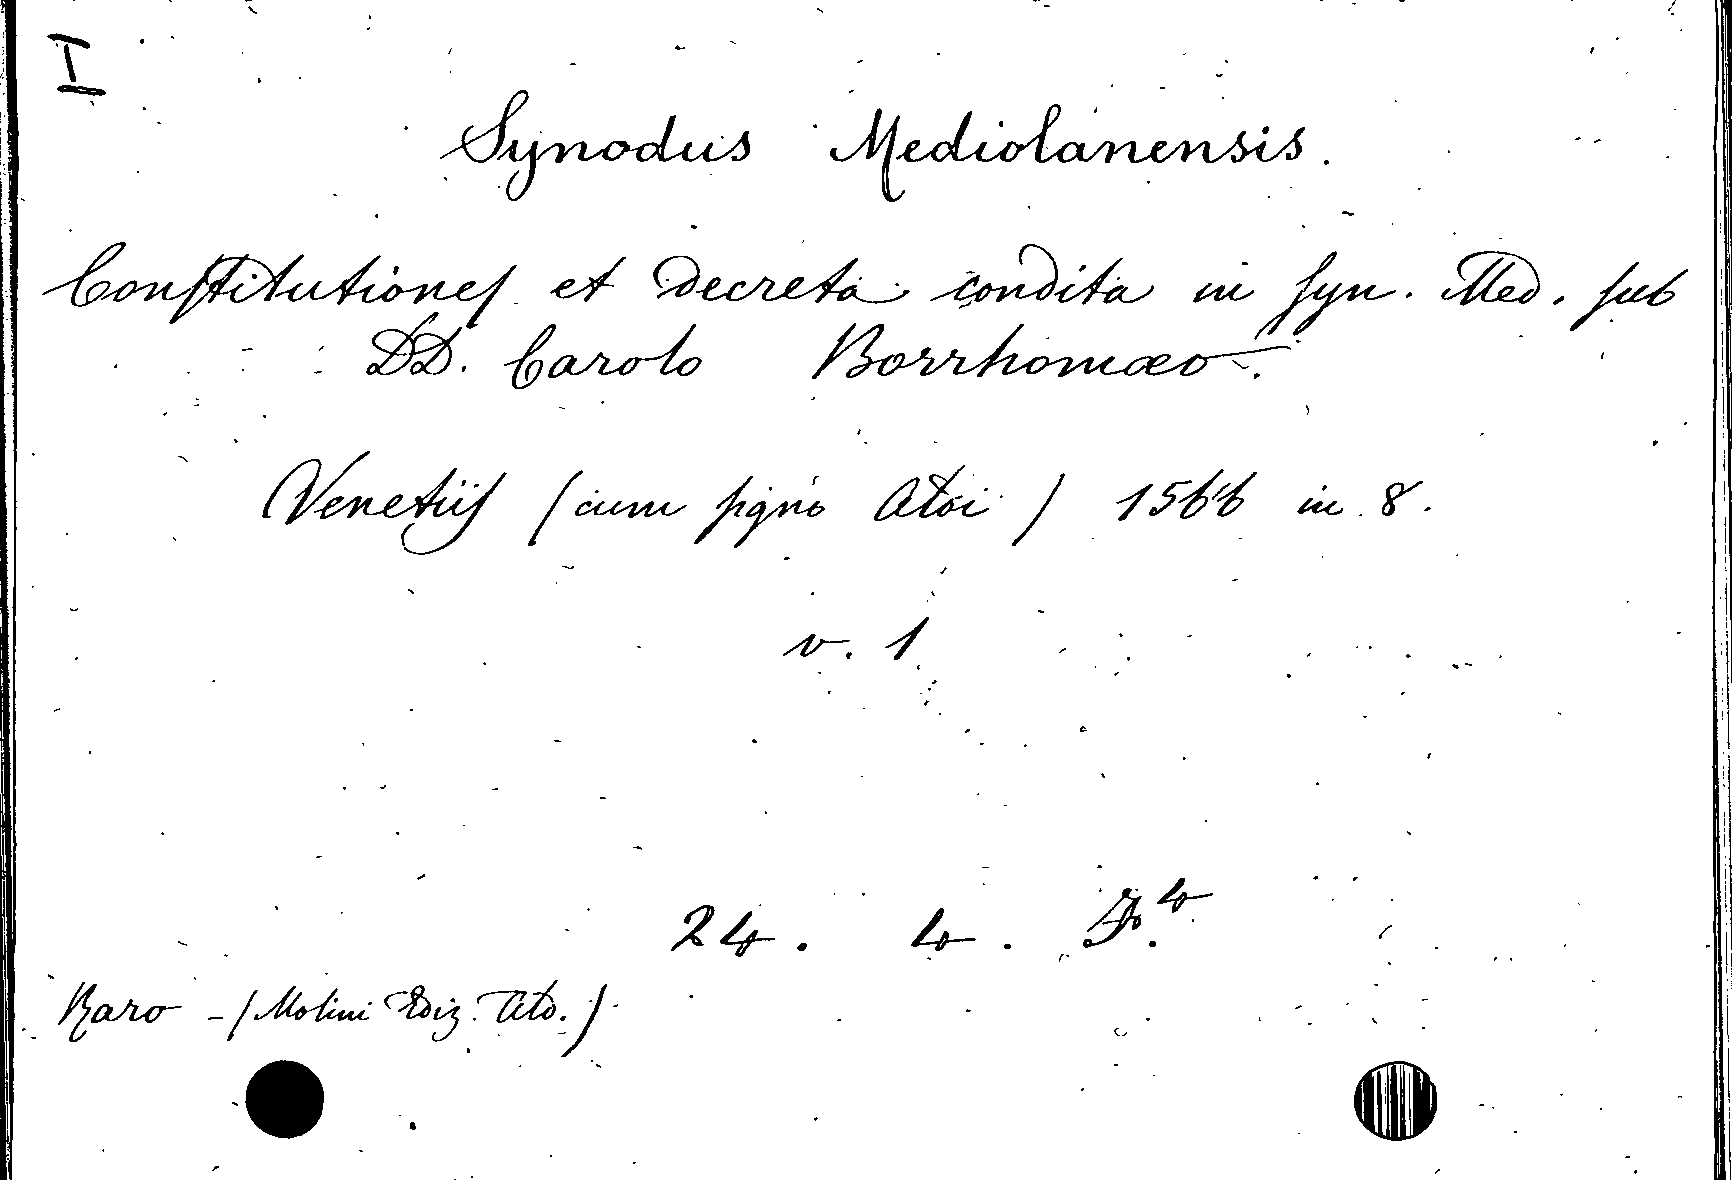 I
Synodus Mediolanensis.
Conſtitutioneſ et decreta condita in ſyn. Med. ſub
DD. Carolo Borrhomæo.
Venetiiſ (cum ſigno Aldi) 1566 in 8.
v. 1
24. 4. F.4
Raro - (Molini Ediz. Ald.)